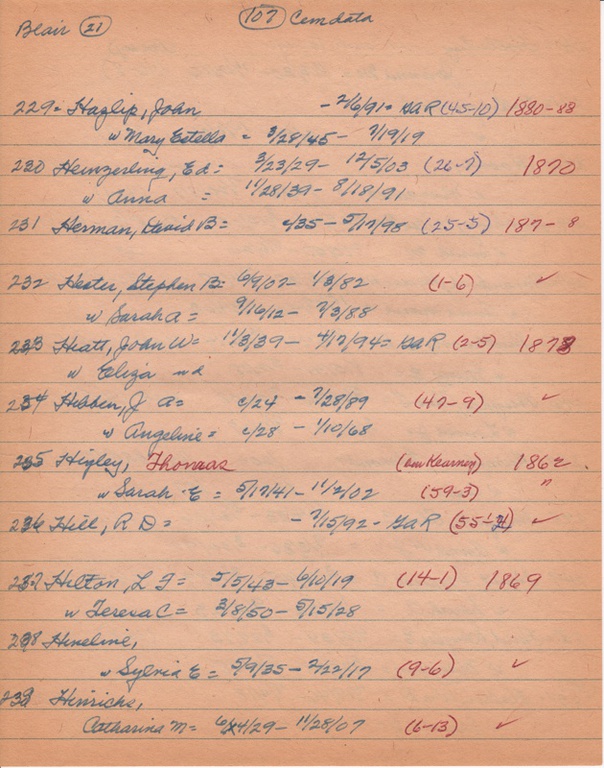 Blair (21) (107) Cemdata
229= Hazlip, John - 2/6/91= GAR (45-10) 1880-88
w Mary Estella = 3/28/45 - 7/19/19
230 Heinzerling, Ed= 3/23/29 - 12/5/03 (26-7) 1870
w Anna = 11/28/39 - 8/18/91
231 Herman, David B= c/35 - 5/17/98 (25-5) 187-8
232 Hester, Stephen B= 6/9/07 - 1/3/82 (1-6) ✓
w Sarah A= 9/16/12 - 7/3/88
233 Hiatt, John W= 11/3/39 - 4/17/94= GAR (2-5) 1873
w Eliza nd
234 Hibben, J A= c/24 - 7/28/89 (47-9) ✓
w Angeline= c/28 - 1/10/68
235 Higley, Thomas (om Kearney) 1862
w Sarah E = 5/17/41 - 11/2/02 (59-3) "
236 Hill, R D= - 7/15/92 - GAR (55-4) ✓
237 Hilton, L F= 5/5/43 - 6/10/19 (14-1) 1869
w Teresa C= 3/8/50 - 5/15/28
238 Hineline,
w Sylvia E= 5/9/35 - 2/22/17 (9-6) ✓
239 Hinrichs,
Catharina M= 6/24/29 - 11/28/07 (6-13) ✓